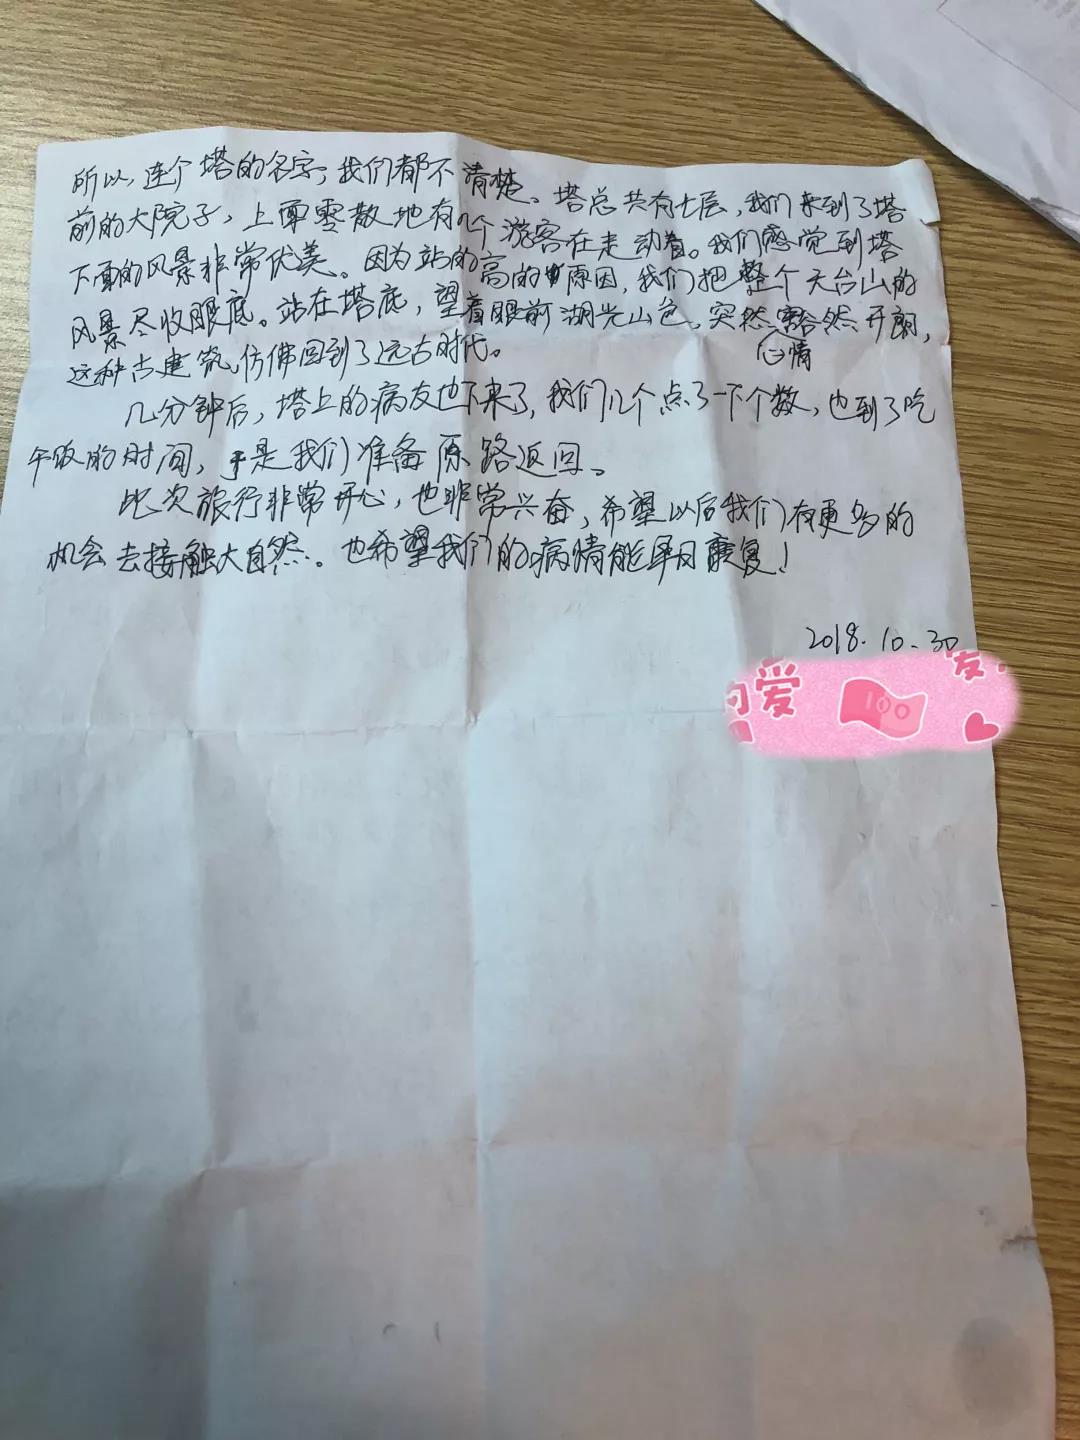 所以,连个塔的名字,我们都不清楚。塔总共有七层,我们来到了塔
前的大院子,上面零散地有几个游客在走动着。我们感觉到塔
下面的风景非常优美。因为站的高的原因,我们把整个天台山的
风景尽收眼底。站在塔底,望着眼前湖光山色,突然心情豁然开朗,
这种古建筑,仿佛回到了远古时代。
几分钟后,塔上的病友也下来了,我们几个点了一下个数,也到了吃
午饭的时间,于是我们准备原路返回。
此次旅行非常开心,也非常兴奋,希望以后我们有更多的
机会去接触大自然。也希望我们的病情能早日康复!
2018.10.30
爱
100
爱